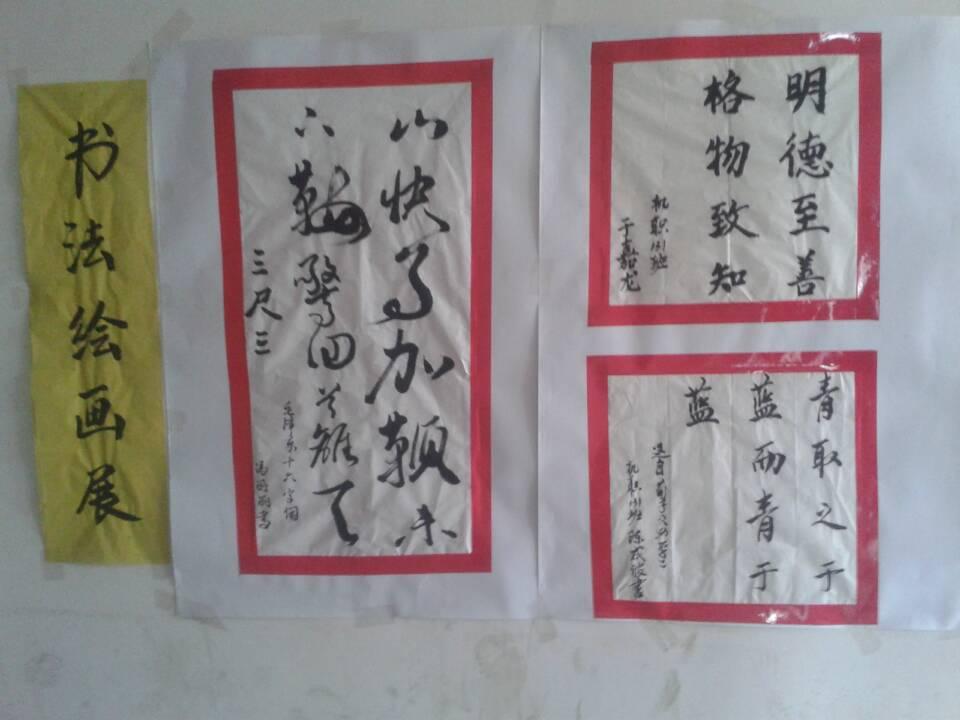 书法绘画展
山快马加鞭未
下鞍惊回首离天
三尺三
毛泽东十六字词
明德至善
格物致知
机职111班
青取之于
蓝而青于
蓝